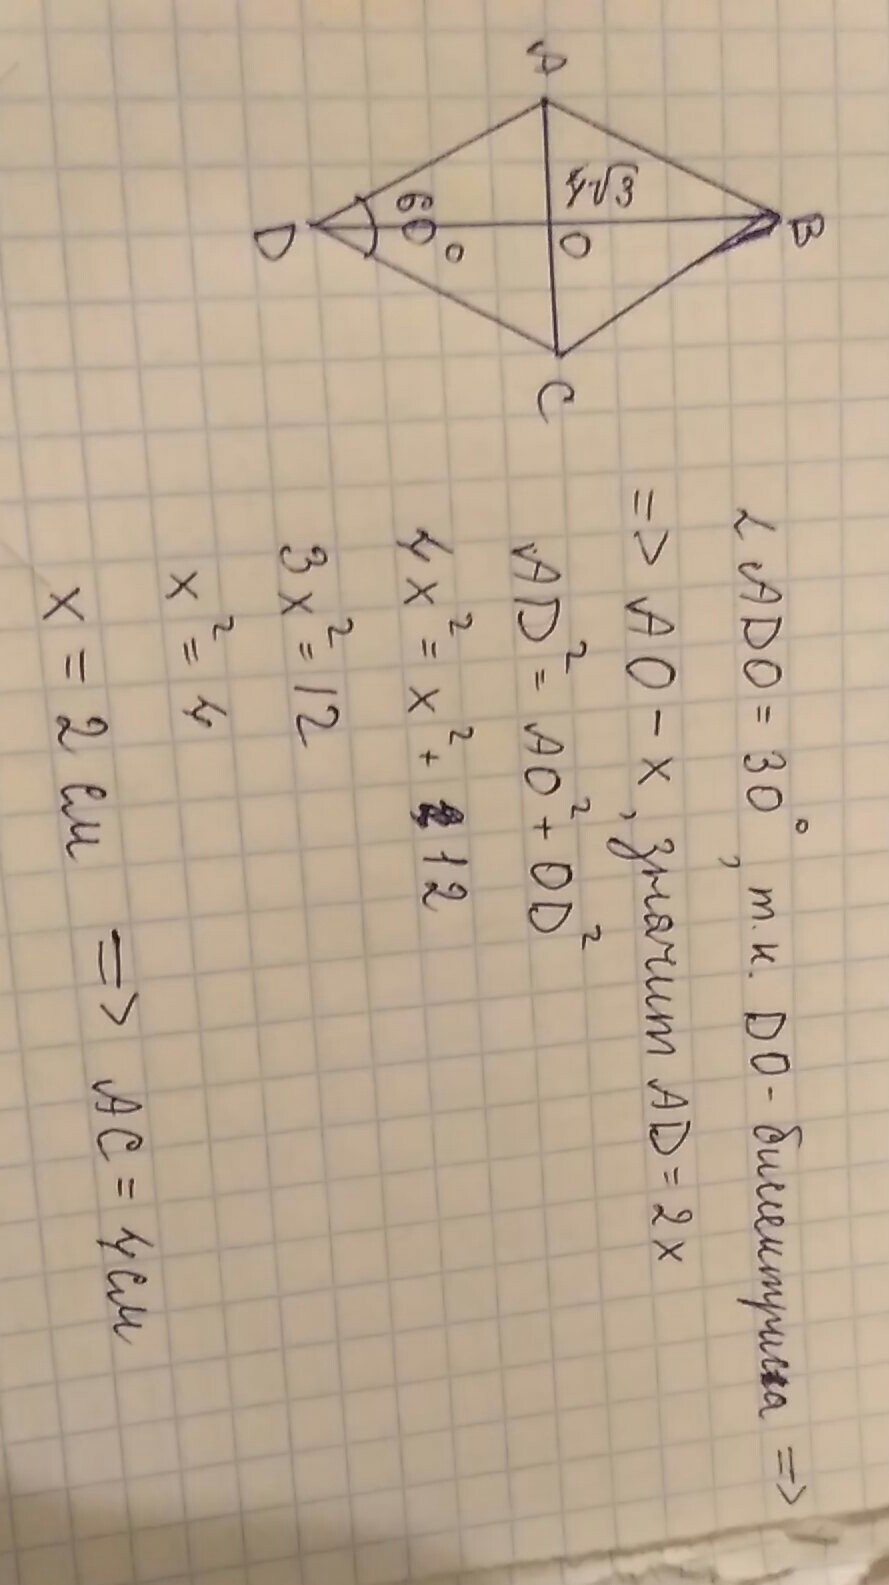 A
B
4√3
O
60°
D
C
∠ADO = 30°, т.к. DO - биссектрисса =>
=> AO - x, значит AD = 2x
AD² = AO² + OD²
4x² = x² + 12
3x² = 12
x² = 4
x = 2 см => AC = 4 см